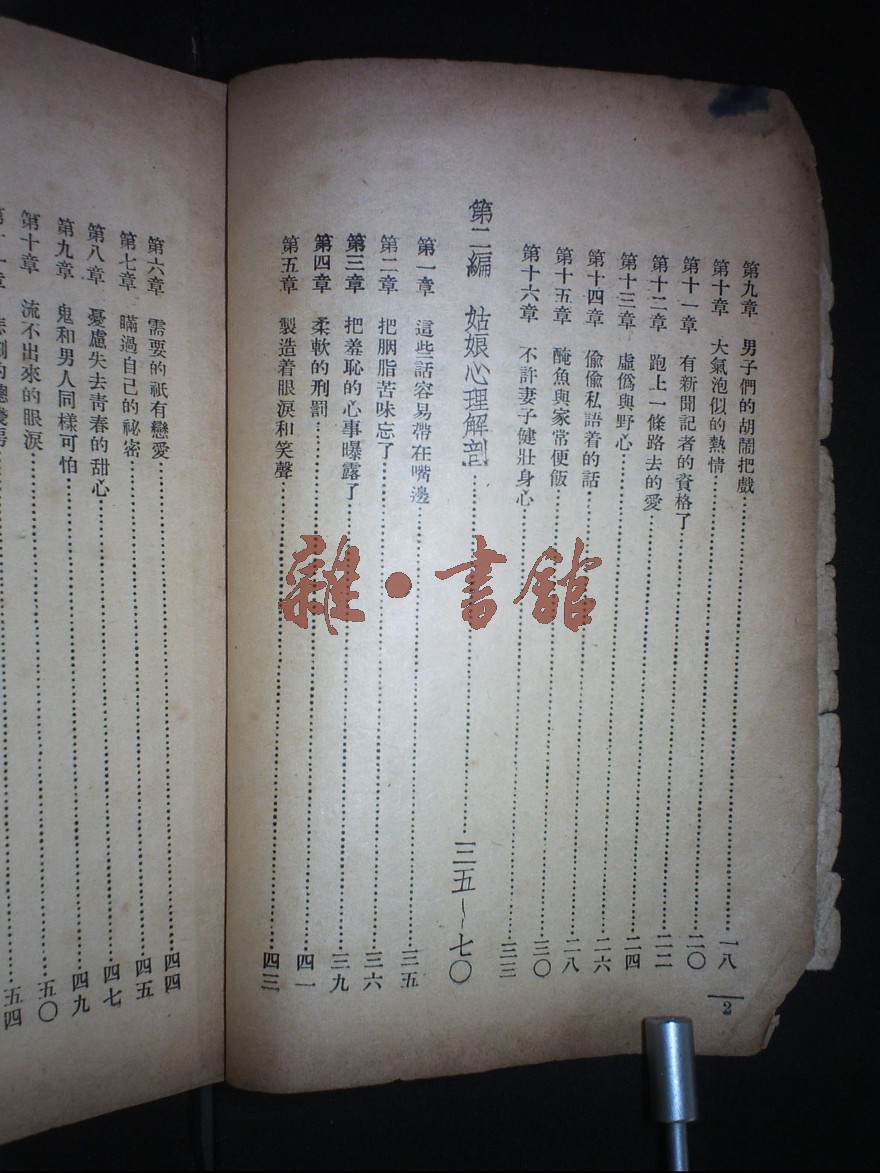 第九章 男子們的胡鬧把戲……一八
第十章 大氣泡似的熱情……二〇
第十一章 有新聞記者的資格了……二二
第十二章 跑上一條路去的愛……二四
第十三章 虛僞與野心……二六
第十四章 偷偷私語着的話……二八
第十五章 醃魚與家常便飯……三〇
第十六章 不許妻子健壯身心……三三
第二編 姑娘心理解剖……三五~七〇
第一章 這些話容易帶在嘴邊……三五
第二章 把胭脂苦味忘了……三六
第三章 把羞恥的心事曝露了……三九
第四章 柔軟的刑罰……四一
第五章 製造着眼淚和笑聲……四三
2
第六章 需要的祇有戀愛……四四
第七章 瞞過自己的祕密……四五
第八章 憂慮失去靑春的甜心……四七
第九章 鬼和男人同樣可怕……四九
第十章 流不出來的眼淚……五〇
五四
雜·書館